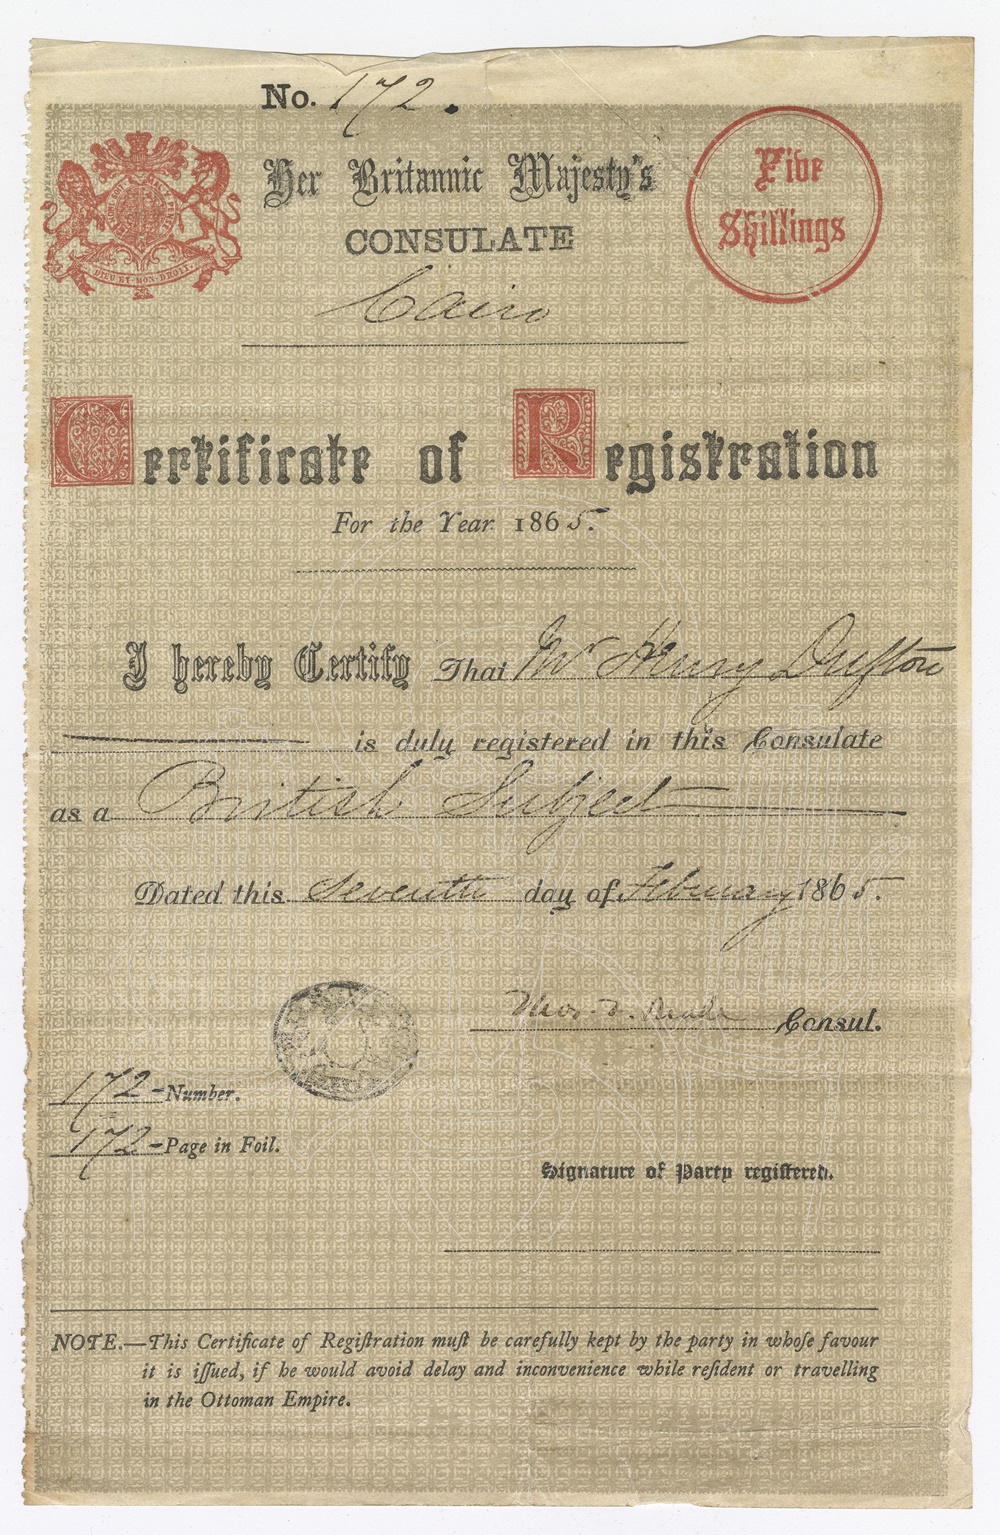 No. 172.
Her Britannic Majesty's
CONSULATE
Cairo
Five
Shillings
DIEU ET MON DROIT
Certificate of Registration
For the Year 1865.
I hereby Certify That Mr Henry Dufton
is duly registered in this Consulate
as a British Subject
Dated this Seventh day of February 1865.
Thos. F. Reade Consul.
172 - Number.
172 - Page in Foil.
Signature of Party registered.
NOTE.—This Certificate of Regiſtration muſt be carefully kept by the party in whoſe favour
it is iſſued, if he would avoid delay and inconvenience while reſident or travelling
in the Ottoman Empire.